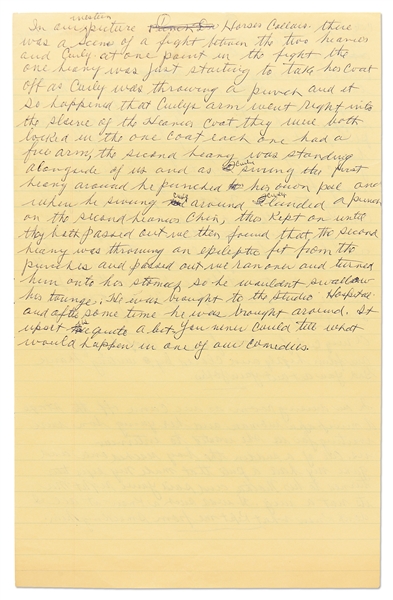 western
In our picture Horses Collars there
was a scene of a fight between the two heavies
and Curly at one point in the fight the
one heavy was just starting to take his coat
off as Curly was throwing a punch and it
so happened that Curlys arm went right into
the sleeve of the Heavies coat they were both
locked in the one coat each one had a
free arm, the second heavy was standing
alongside of us and as Curly swung the first
heavy around he punched his own pal and
when he swung around Curly landed a punch
on the second heavies chin, this kept on until
they both passed out we then found that the second
heavy was throwing an epileptic fit from the
punches and passed out we ran over and turned
him onto his stomach so he wouldnt swallow
his tounge. He was brought to the studio Hospital
and after some time he was brought around. It
upset us quite a bit. You never could tell what
would happen in one of our comedies.